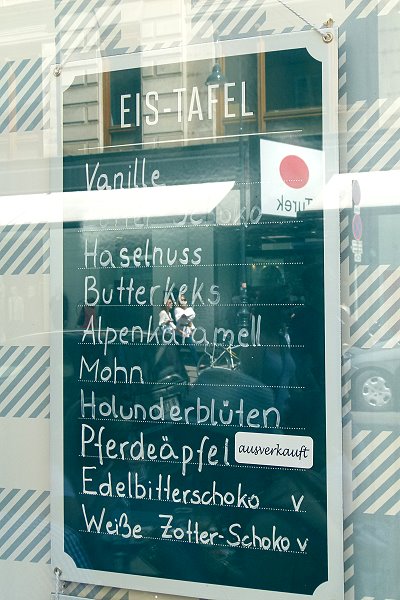 EIS-TAFEL
Vanille
Zotter-Schoko
Haselnuss
Butterkeks
Alpenkaramell
Mohn
Holunderblüten
Pferdeäpfel ausverkauft
Edelbitterschoko v
Weiße Zotter-Schoko v
Turek